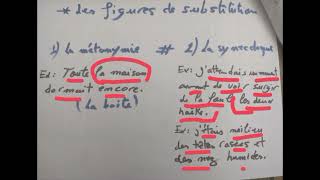 * des figures de substitution
1) la métonymie # 2) la synecdoque
Ex: Toute la maison
dormait encore.
(la boîte)
Ex: j'attendais un
avant de voir surgir
de la les deux
Ex: j'étais milieu
des têtes rasées et
des nez humides.